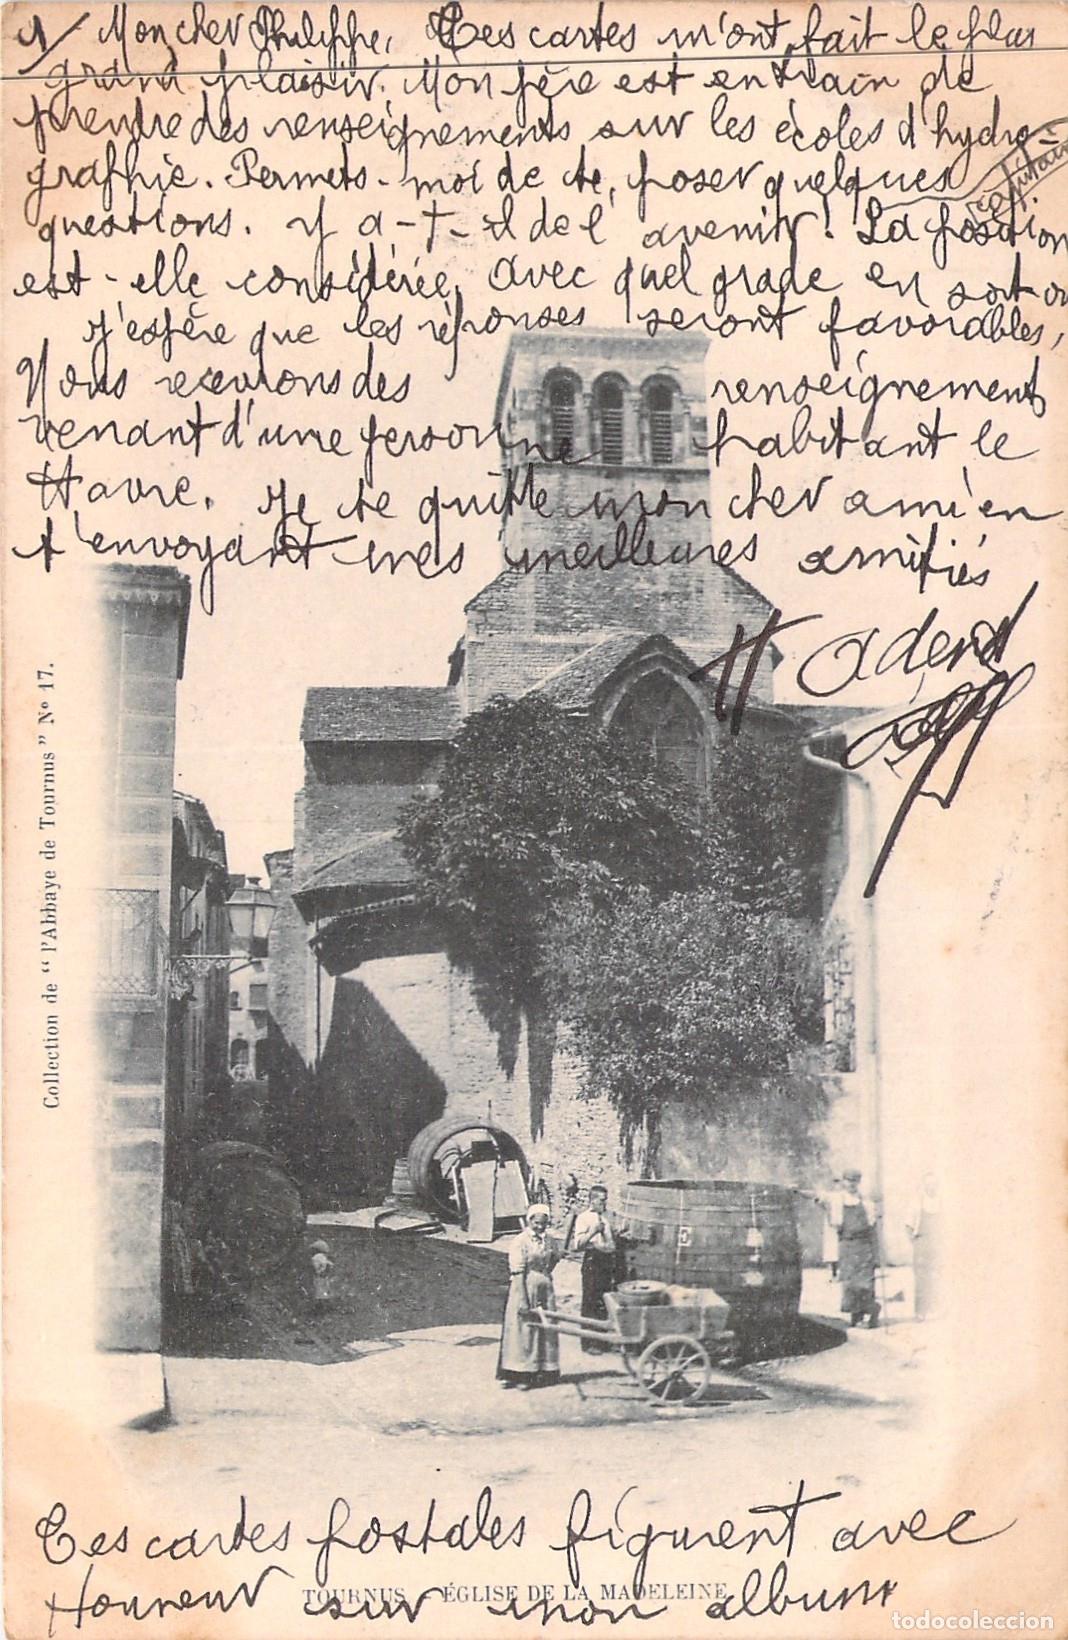 1/ Mon cher Philippe, Tes cartes m'ont fait le plus
grand plaisir. Mon père est en train de
prendre des renseignements sur les écoles d'hydro=
graphie. Permets-moi de te poser quelques
questions. Y a-t-il de l'avenir? La position
est-elle considérée, Avec quel grade en sort on
J'espère que les réponses seront favorables,
Nous recevrons des renseignements
venant d'une personne habitant le
Havre. Je te quitte mon cher ami en
t'envoyant mes meilleures amitiés
Collection de “ l'Abbaye de Tournus ” No 17.
Tes cartes postales figurent avec
Honneur sur mon album
TOURNUS - ÉGLISE DE LA MADELEINE
todocoleccion